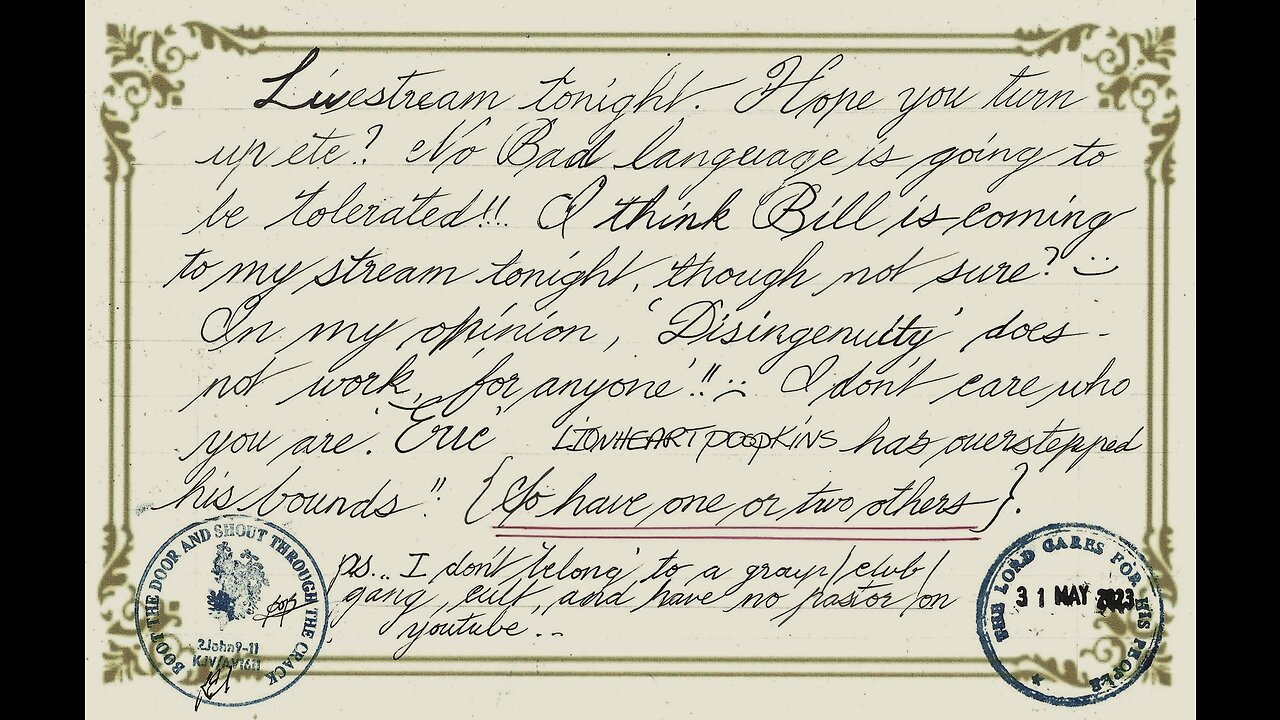 Livestream tonight. Hope you turn
up ete? No Bad language is going to
be tolerated!! I think Bill is coming
to my stream tonight, though not sure?
In my opinion, 'Disingenuity' does -
not work, 'for anyone'!! I don't care who
you are. 'Eric' LIONHEART POOPKINS has overstepped
his bounds". {So have one or two others}.
ps... I don't 'belong' to a group/club/
gang, cult, and have no pastor on
youtube...
BOOT THE DOOR AND SHOUT THROUGH THE CRACK
2John9-11
THE LORD CARES FOR HIS PEOPLE
31 MAY 2023